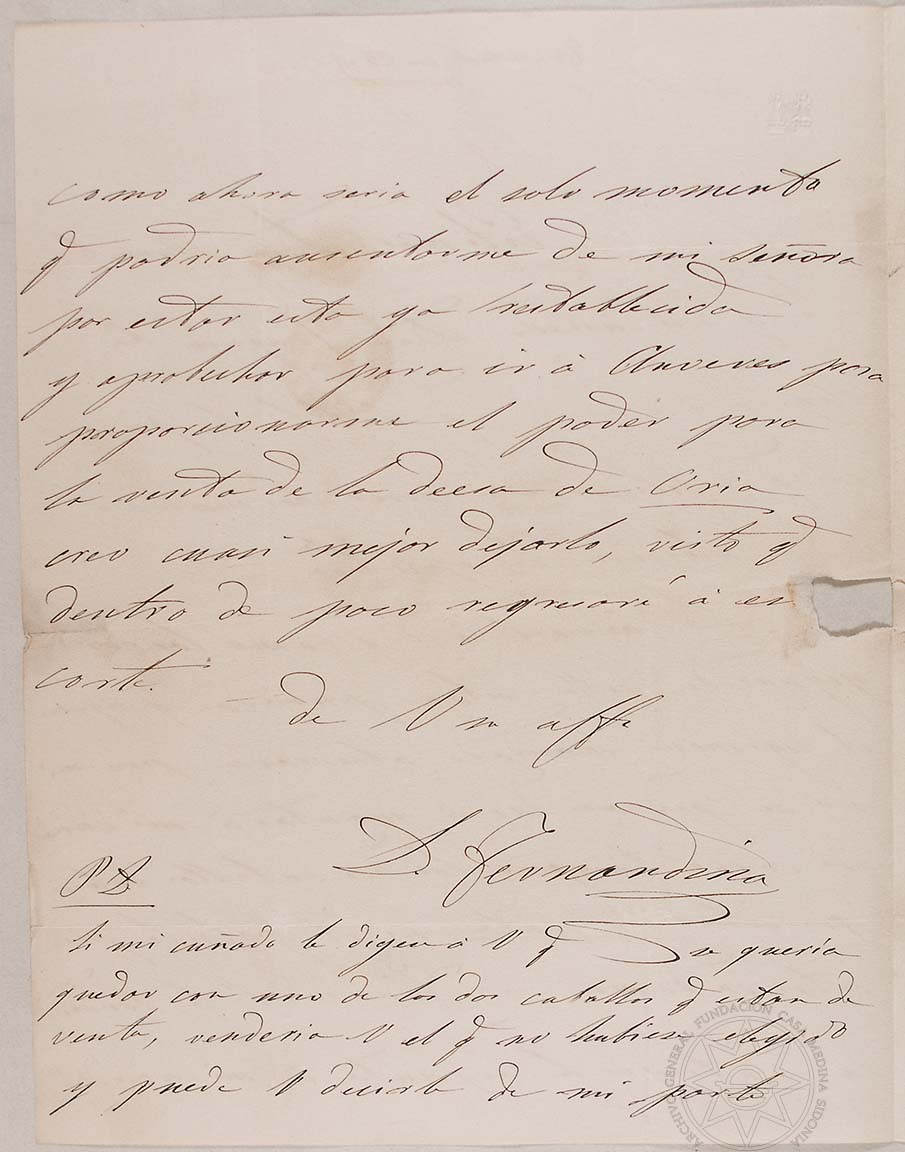 como ahora seria el solo momento
q podria ausentarme de mi señora
por estar esta ya restablecida
y aprobechar para ir á Anveres para
proporcionarme el poder para
la venta de la deesa de Oria
creo cuasi mejor dejarlo, visto q
dentro de poco regresaré á es
corte.
de V su affo
D. Fernandina
PD
Si mi cuñado le digera á V q se queria
quedar con uno de los dos caballos q estan de
venta, venderia V el q no hubiese elegido
y puede V decirle de mi parte
ARCHIVO GENERAL FUNDACIÓN CASA MEDINA SIDONIA